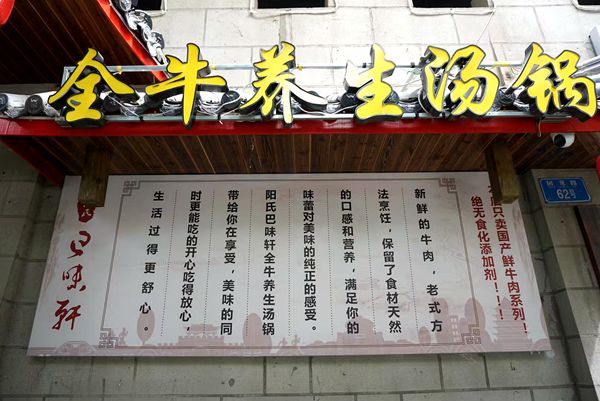 全牛养生汤锅
只卖国产鲜牛肉系列！
绝无食化添加剂！！！
新鲜的牛肉，老式方
法烹饪，保留了食材天然
的口感和营养，满足你的
味蕾对美味的纯正的感受。
阳氏巴味轩全牛养生汤锅
带给你在享受，美味的同
时更能吃的开心吃得放心，
生活过得更舒心。
巴味轩
62号